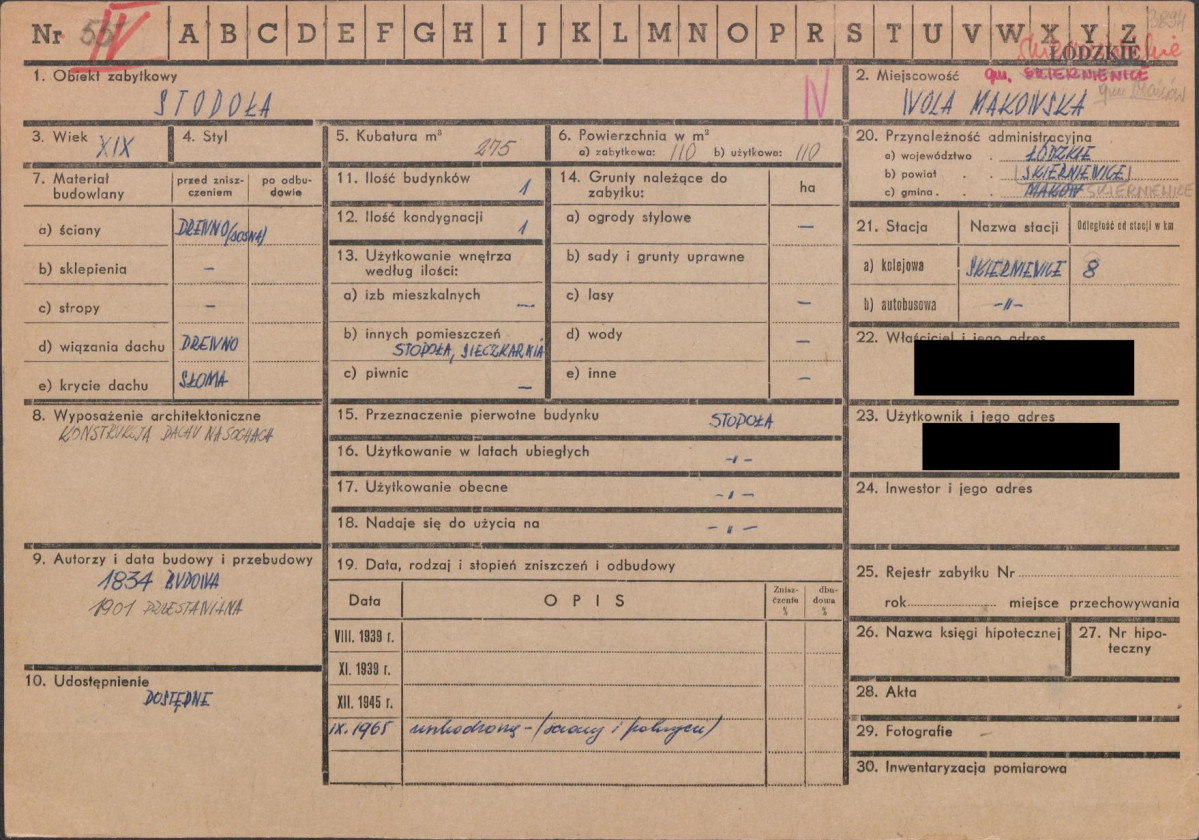 Nr 55 IV A B C D E F G H I J K L M N O P R S T U V W X Y Z
3894
skierniewickie
ŁÓDZKIE
1. Obiekt zabytkowy
STODOŁA
IV
2. Miejscowość gm. SKIERNIEWICE
gm Maków
WOLA MAKOWSKA
3. Wiek
XIX
4. Styl
5. Kubatura m³
275
6. Powierzchnia w m²
a) zabytkowa: 110 b) użytkowa: 110
20. Przynależność administracyjna
a) województwo . ŁÓDZKIE
b) powiat . SKIERNIEWICE
c) gmina . . MAKÓW SKIERNIEWICE
7. Materiał budowlany
przed zniszczeniem
po odbudowie
a) ściany DREWNO (SOSNA)
b) sklepienia –
c) stropy –
d) wiązania dachu DREWNO
e) krycie dachu SŁOMA
11. Ilość budynków 1
12. Ilość kondygnacji 1
13. Użytkowanie wnętrza
według ilości:
a) izb mieszkalnych —
b) innych pomieszczeń
STODOŁA, SIECZKARNIA
c) piwnic —
14. Grunty należące do
zabytku:
ha
a) ogrody stylowe —
b) sady i grunty uprawne
c) lasy —
d) wody —
e) inne —
21. Stacja
Nazwa stacji
Odległość od stacji w km
a) kolejowa SKIERNIEWICE 8
b) autobusowa –„–
22. Właściciel i jego adres
23. Użytkownik i jego adres
24. Inwestor i jego adres
8. Wyposażenie architektoniczne
KONSTRUKCJA DACHU NA SOCHACH
15. Przeznaczenie pierwotne budynku STODOŁA
16. Użytkowanie w latach ubiegłych –„–
17. Użytkowanie obecne –„–
18. Nadaje się do użycia na –„–
9. Autorzy i data budowy i przebudowy
1834 BUDOWA
1901 PRZESTAWIANA
10. Udostępnienie
DOSTĘPNE
19. Data, rodzaj i stopień zniszczeń i odbudowy
Data
OPIS
Zniszczenia %
dbudowa %
VIII. 1939 r.
XI. 1939 r.
XII. 1945 r.
IX. 1965 uszkodzona – (ściany i pokrycie)
25. Rejestr zabytku Nr
rok miejsce przechowywania
26. Nazwa księgi hipotecznej
27. Nr hipoteczny
28. Akta
29. Fotografie –
30. Inwentaryzacja pomiarowa